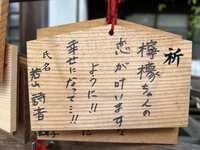 祈
檸檬ちゃんの
恋が叶います
ように!!
幸せになって…!!
氏名
若山 詩音